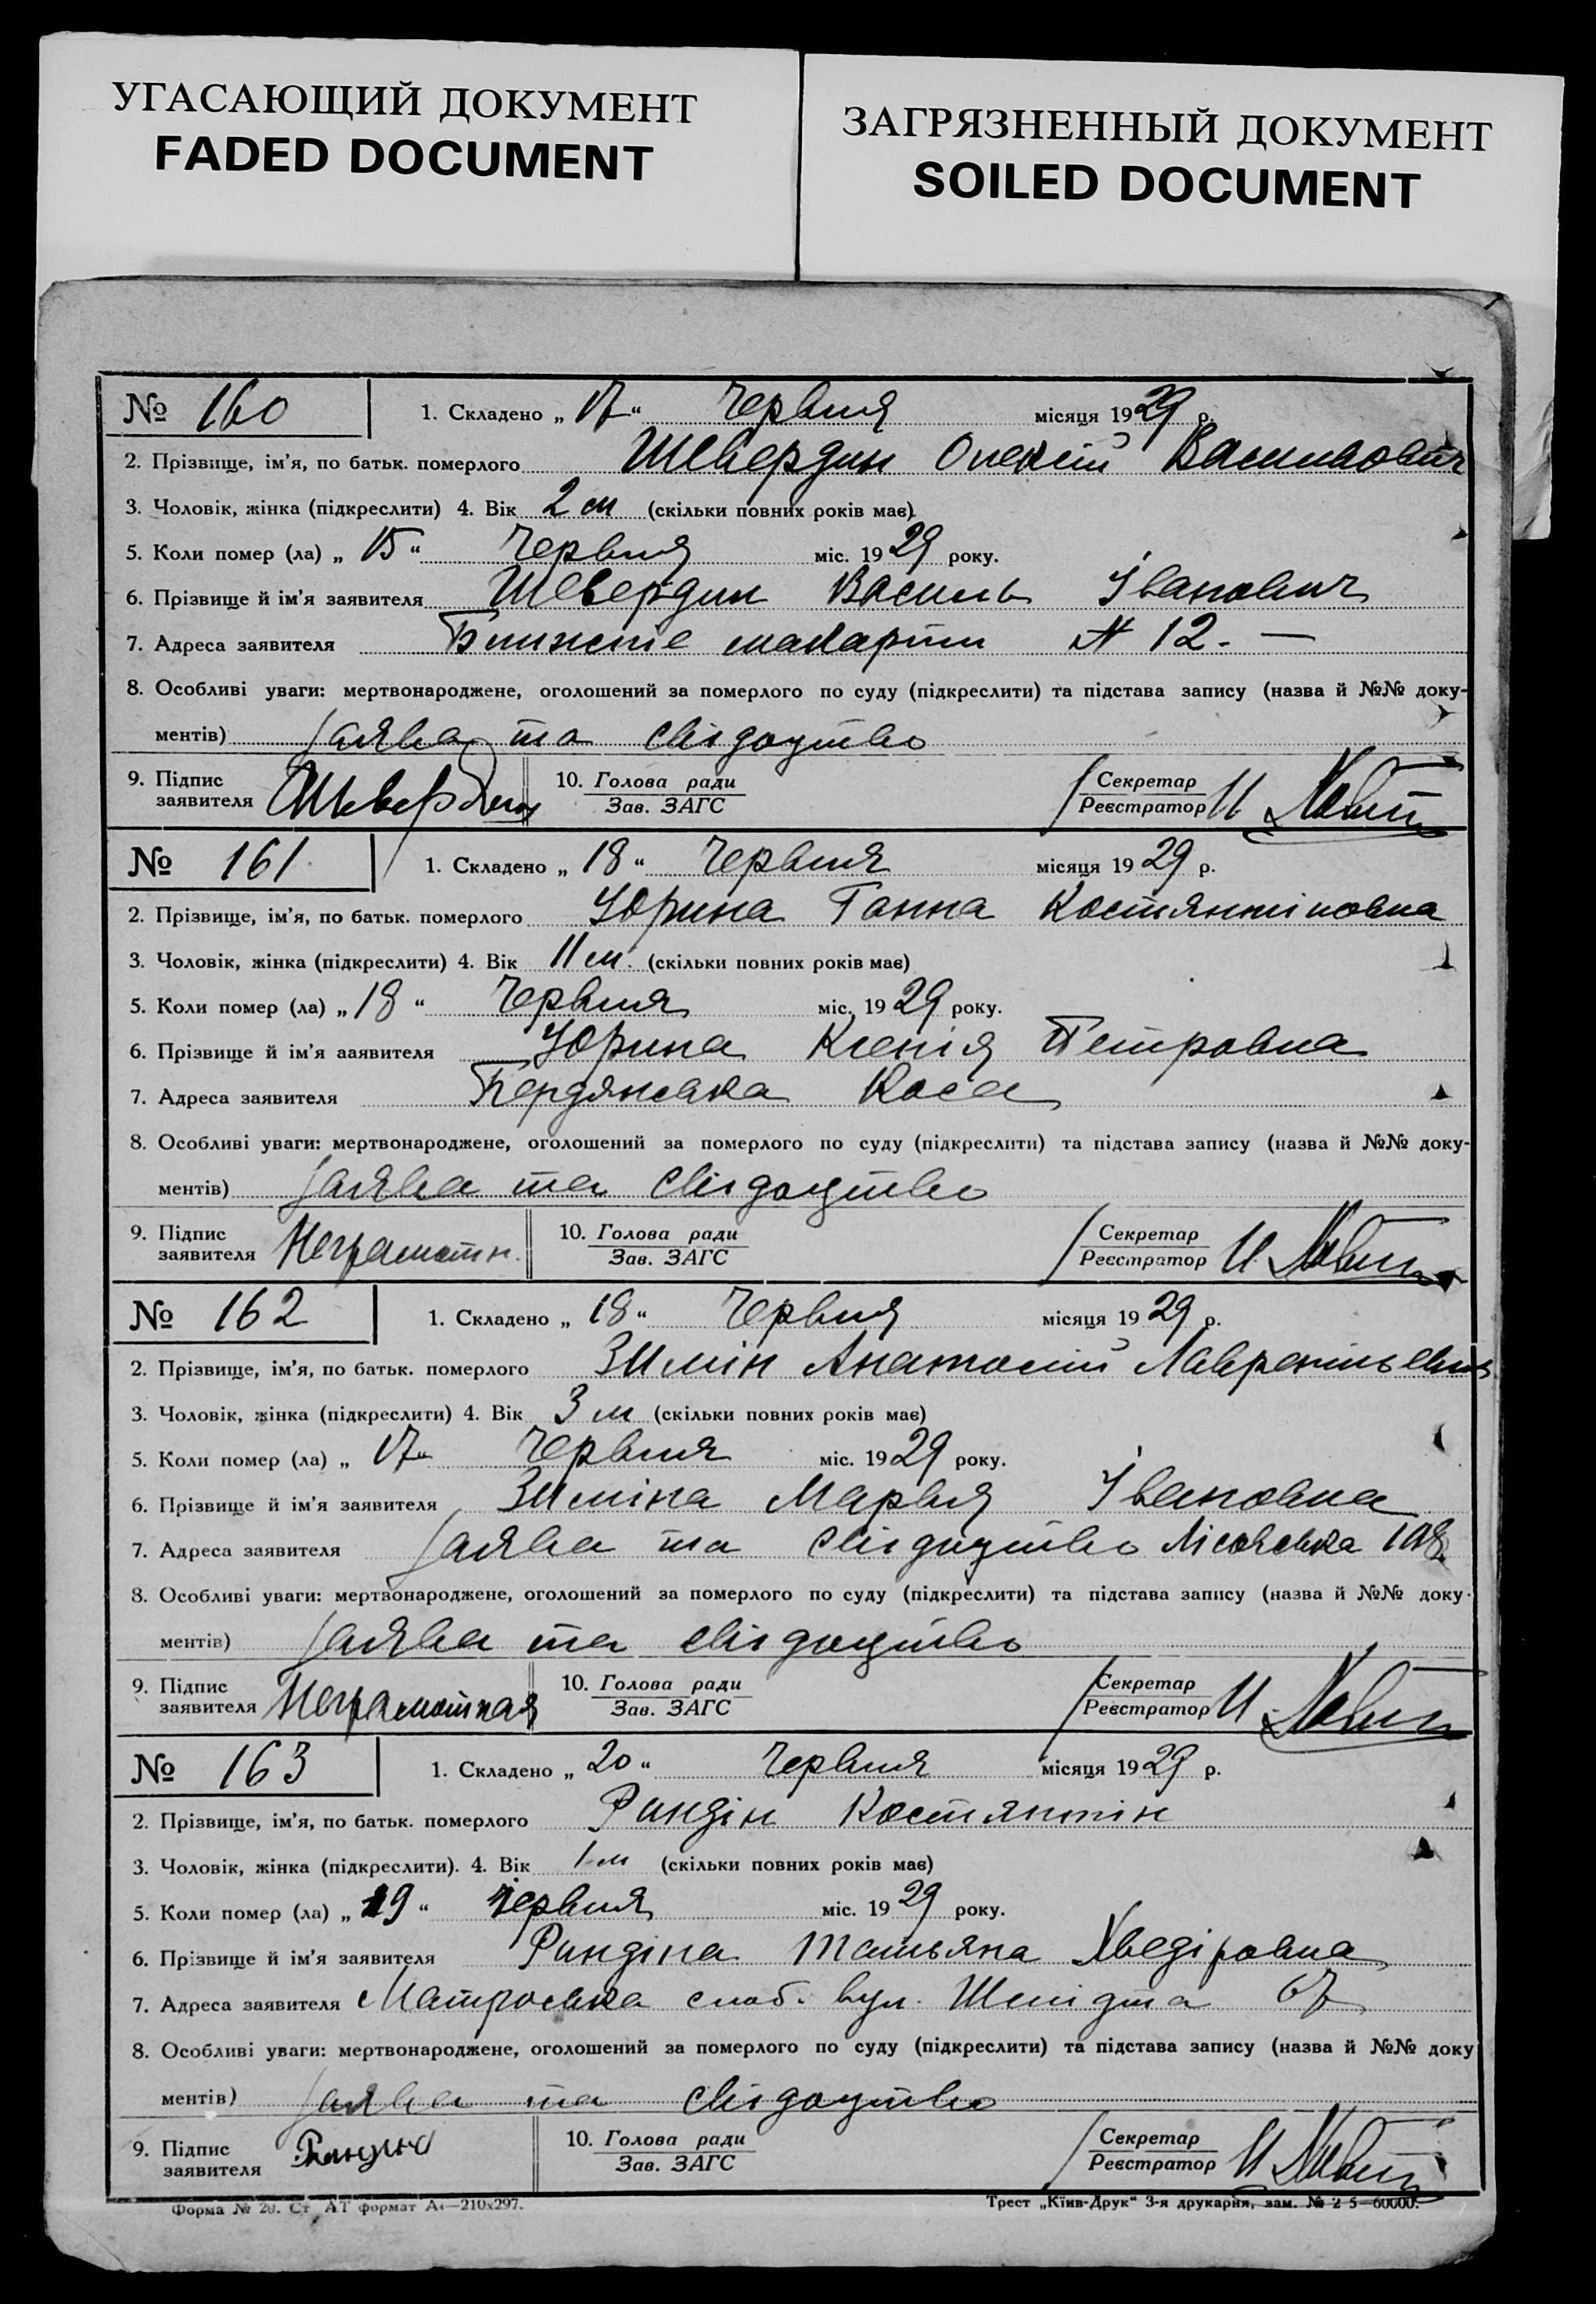 УГАСАЮЩИЙ ДОКУМЕНТ
FADED DOCUMENT
ЗАГРЯЗНЕННЫЙ ДОКУМЕНТ
SOILED DOCUMENT
№ 160 1. Складено „ 17 “ Червня місяця 1929 р.
2. Прізвище, ім’я, по батьк. померлого Шевердин Олексій Васильович
3. Чоловік, жінка (підкреслити) 4. Вік 2 м (скільки повних років має)
5. Коли помер (ла) „ 15 “ Червня міс. 1929 року.
6. Прізвище й ім’я заявителя Шевердин Василь Іванович
7. Адреса заявителя Ближніе макорти № 12. —
8. Особливі уваги: мертвонароджене, оголошений за померлого по суду (підкреслити) та підстава запису (назва й №№ доку-
ментів) Заява та свідоцтво
9. Підпис заявителя Шевердин 10. Голова ради Зав. ЗАГС Секретар Реєстратор И
№ 161 1. Складено „ 18 “ Червня місяця 1929 р.
2. Прізвище, ім’я, по батьк. померлого Юрина Ганна Костянтіновна
3. Чоловік, жінка (підкреслити) 4. Вік 11 м. (скільки повних років має)
5. Коли помер (ла) „ 18 “ Червня міс. 1929 року.
6. Прізвище й ім’я ааявителя Юрина Ксенія Петровна
7. Адреса заявителя Бердянська Коса
8. Особливі уваги: мертвонароджене, оголошений за померлого по суду (підкреслити) та підстава запису (назва й №№ доку-
ментів) Заява та свідоцтво
9. Підпис заявителя Неграмотн. 10. Голова ради Зав. ЗАГС Секретар Реєстратор И
№ 162 1. Складено „ 18 “ Червня місяця 1929 р.
2. Прізвище, ім’я, по батьк. померлого Зимін Анатолій Лаврентьевич
3. Чоловік, жінка (підкреслити) 4. Вік 3 м (скільки повних років має)
5. Коли помер (ла) „ 17 “ Червня міс. 1929 року.
6. Прізвище й ім’я заявителя Зиміна Марвя Івановна
7. Адреса заявителя Заява та свідоцтво 108.
8. Особливі уваги: мертвонароджене, оголошений за померлого по суду (підкреслити) та підстава запису (назва й №№ доку-
ментів) Заява та свідоцтво
9. Підпис заявителя Неграмотная 10. Голова ради Зав. ЗАГС Секретар Реєстратор И
№ 163 1. Складено „ 20 “ Червня місяця 1929 р.
2. Прізвище, ім’я, по батьк. померлого Риндін Костянтін
3. Чоловік, жінка (підкреслити). 4. Вік 1 м (скільки повних років має)
5. Коли помер (ла) „ 19 “ Червня міс. 1929 року.
6. Прізвище й ім’я заявителя Риндіна Татьяна Хведіровна
7. Адреса заявителя Матроська слоб. вул. Шмідта 67
8. Особливі уваги: мертвонароджене, оголошений за померлого по суду (підкреслити) та підстава запису (назва й №№ доку
ментів) Заява та свідоцтво
9. Підпис заявителя 10. Голова ради Зав. ЗАГС Секретар Реєстратор И
Форма № 20. Ст. АТ формат А4—210х297. Трест „Київ-Друк“ 3-я друкарня, зам. № 2 5—60000.